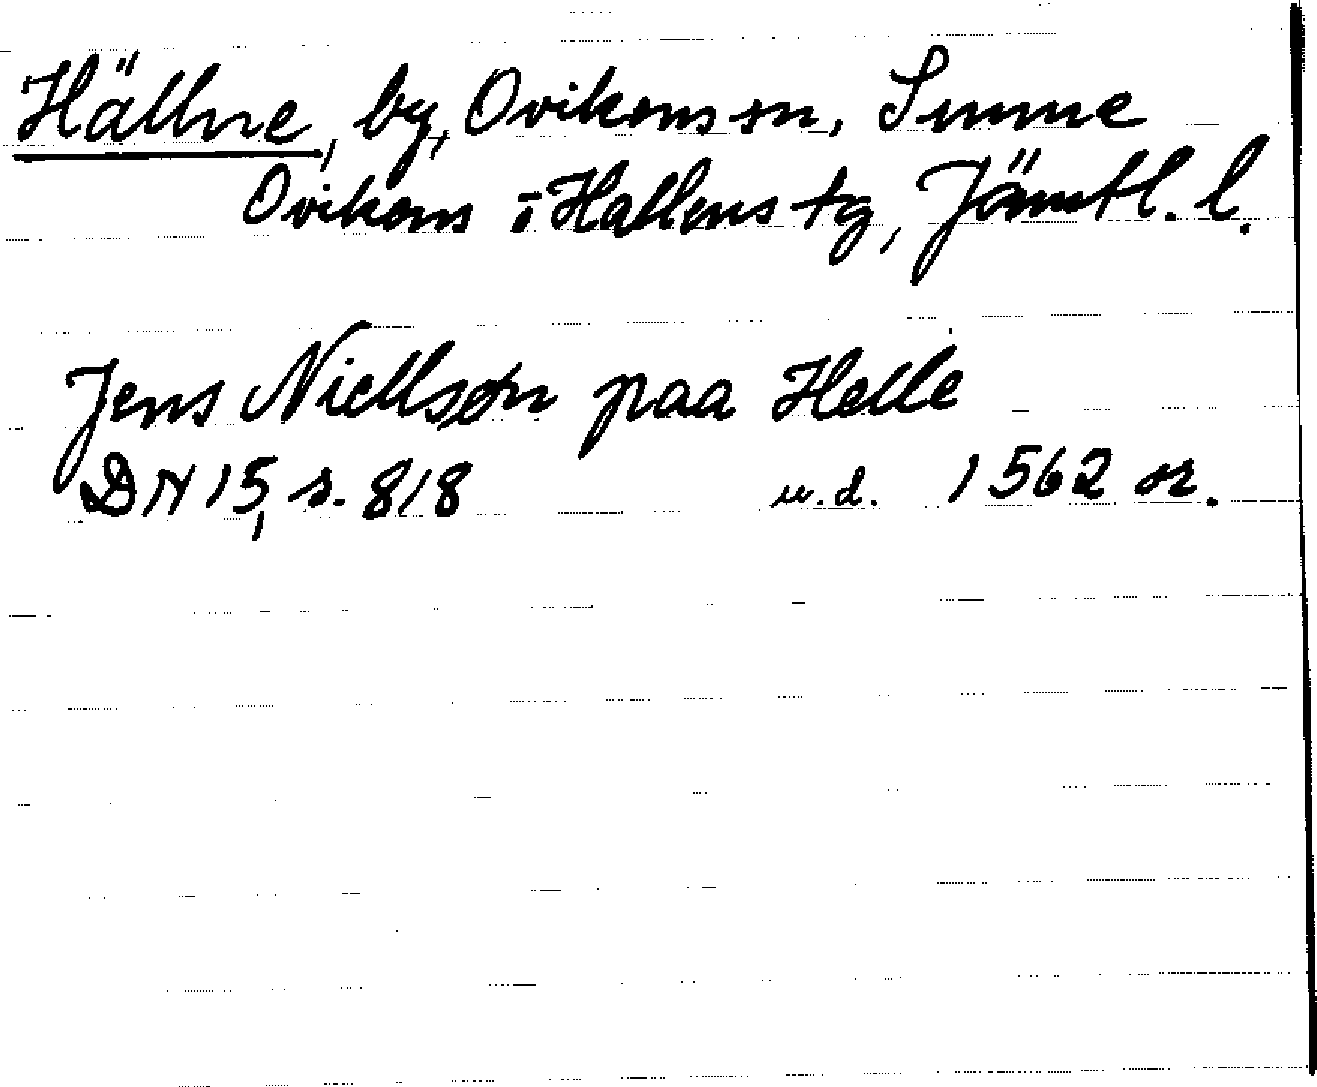 Hällne, by, Ovikens sn, Sunne
Ovikens o Hallens tg, Jämtl. l.
Jens Niellsøn paa Helle
DN 15, s. 818 u.d. 1562 or.